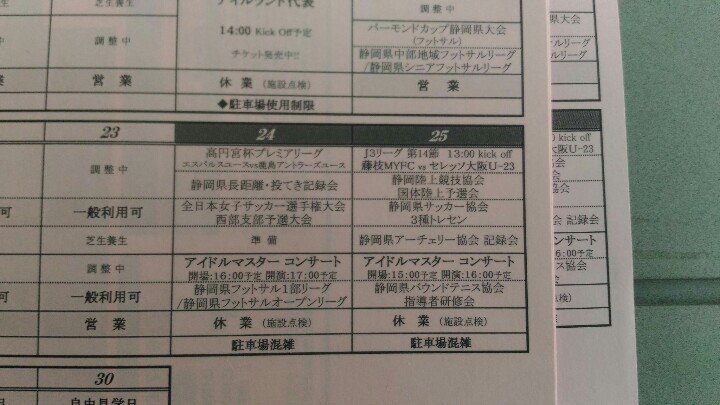 芝生養生
調整中
営業
アイルランド代表
14:00 Kick Off予定
チケット発売中!!
休業 (施設点検)
◆駐車場使用制限
調整中
バーモンドカップ静岡県大会
(フットサル)
静岡県中部地域フットサルリーグ
/静岡県シニアフットサルリーグ
営業
23
調整中
一般利用可
芝生養生
調整中
一般利用可
営業
24
高円宮杯プレミアリーグ
エスパルスユースvs鹿島アントラーズユース
静岡県長距離・投てき記録会
全日本女子サッカー選手権大会
西部支部予選大会
準備
アイドルマスター コンサート
開場:16:00予定 開演:17:00予定
静岡県フットサル1部リーグ
/静岡県フットサルオープンリーグ
休業 (施設点検)
駐車場混雑
25
J3リーグ 第14節 13:00 kick off
藤枝MYFC vs セレッソ大阪U-23
静岡陸上競技協会
国体陸上予選会
静岡県サッカー協会
3種トレセン
静岡県アーチェリー協会 記録会
アイドルマスター コンサート
開場:15:00予定 開演:16:00予定
静岡県バウンドテニス協会
指導者研修会
休業 (施設点検)
駐車場混雑
30
自由見学日
県大会
ルリーグ
ルリーグ
kick off
大阪U-23
会
会 記録会
ンサート
16:00予定
ス協会
会
点検)